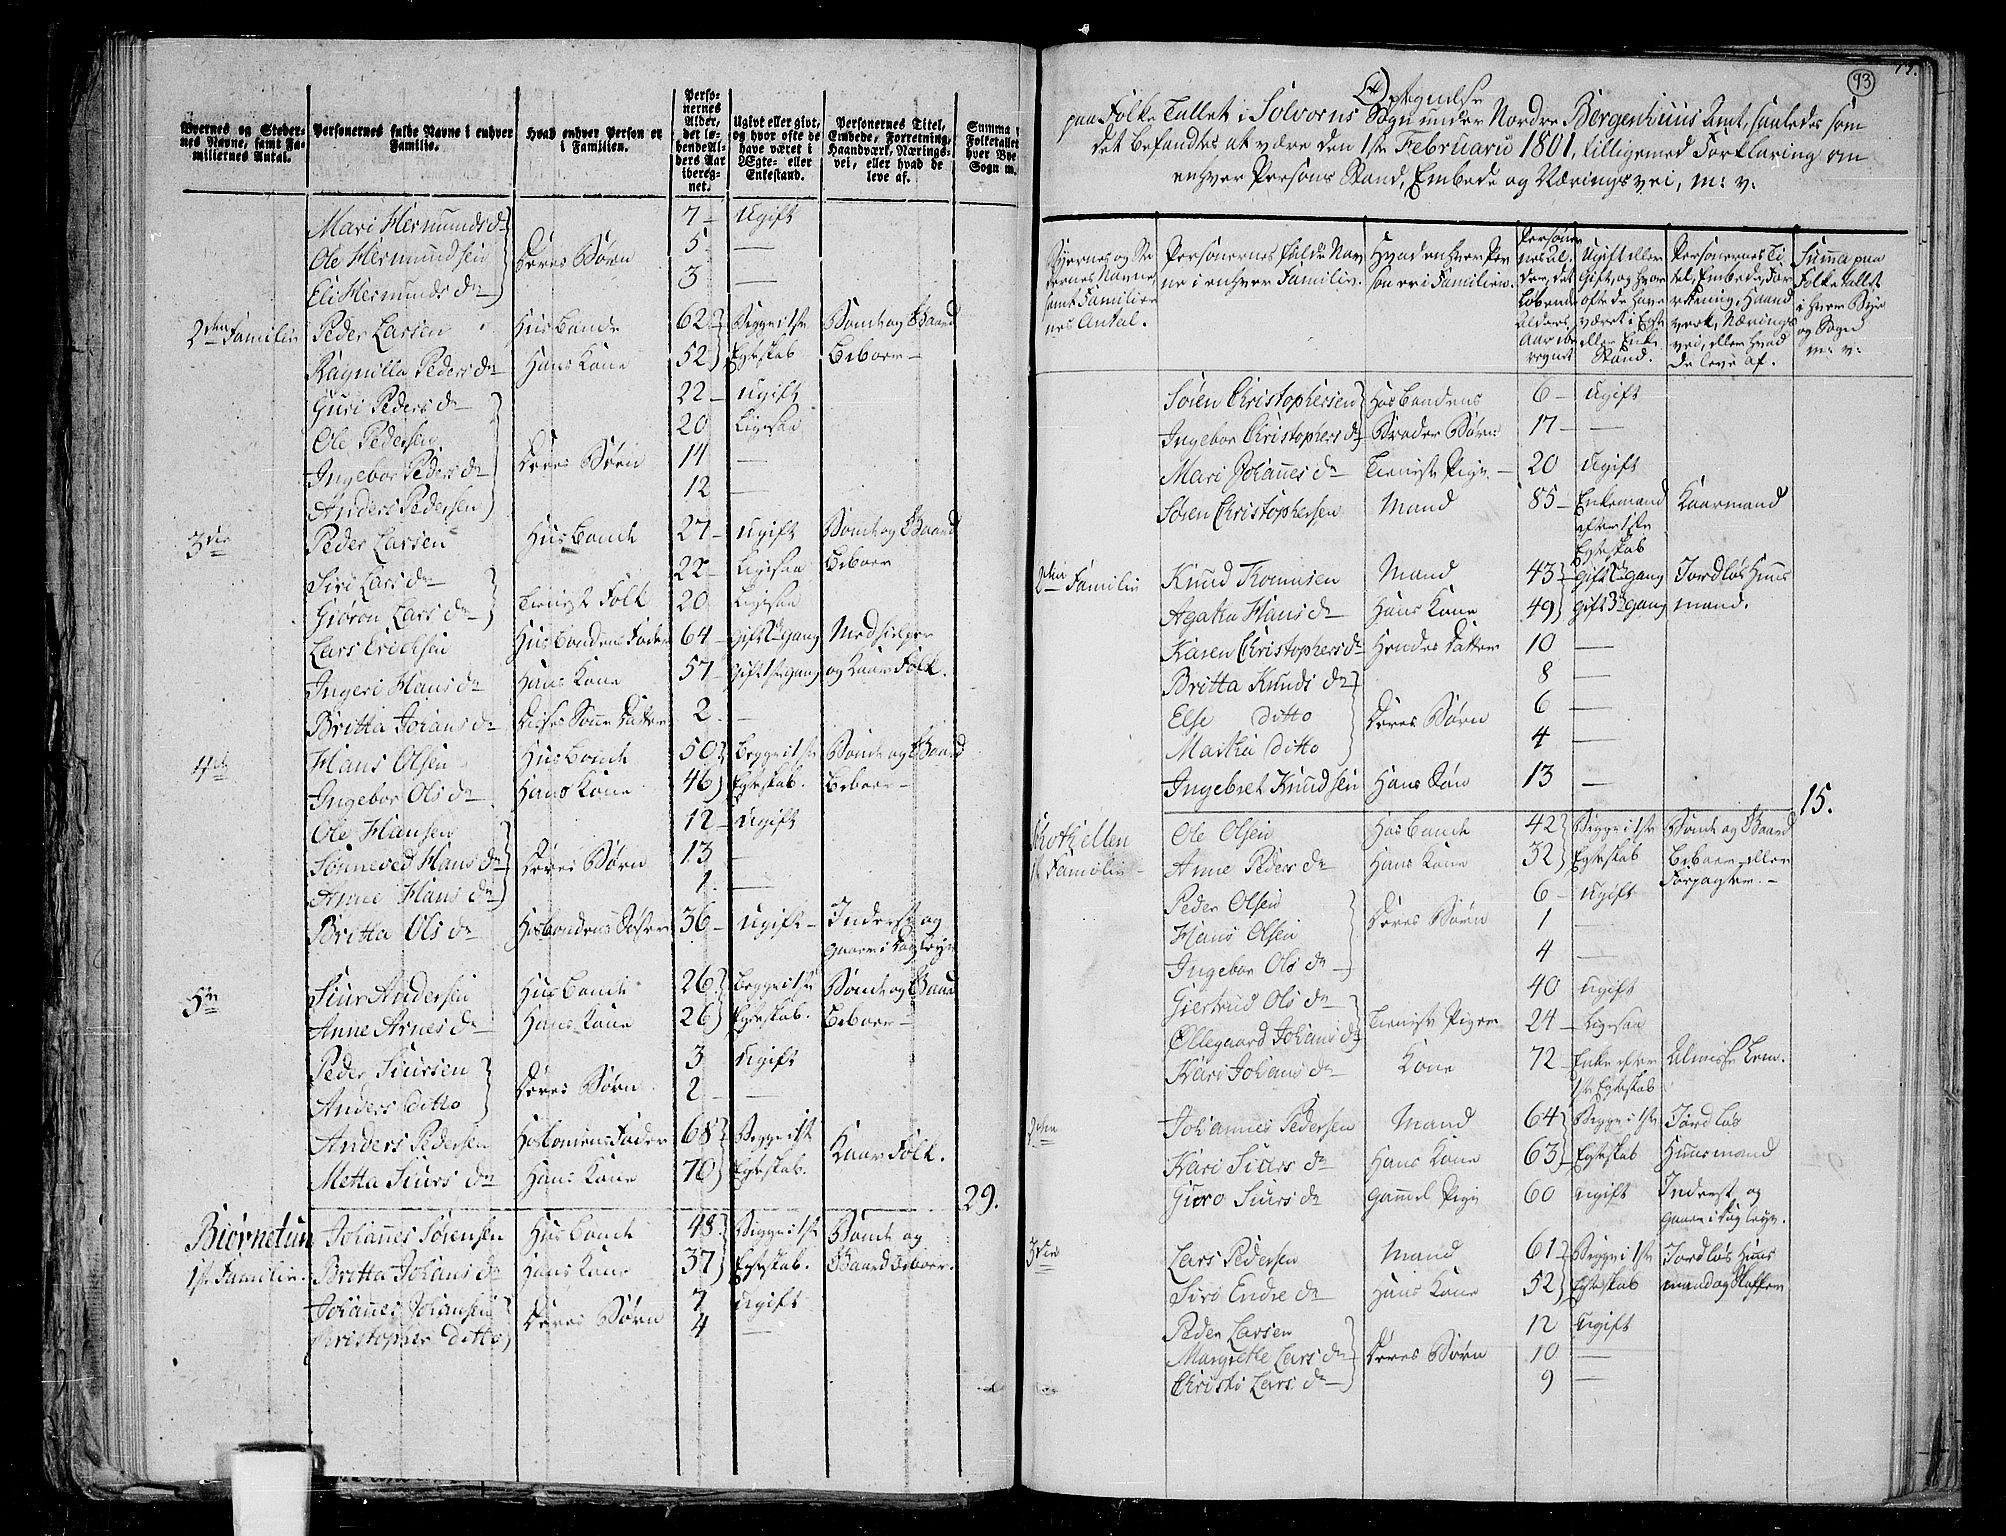 Byernes og Stedernes Navne, samt Familiernes Antal.
Personernes fulde Navne i enhver Familie.
Hvad enhver Person er i Familien.
Personernes Alder, det løbende Alders Aar iberegnet.
Ugivt eller givt, og hvor ofte de have været i Ægte- eller Enkestand.
Personernes Titel, Embede, Forretning, Haandværk, Næringsvei, eller hvad de leve af.
Summa Folketallet hver Bye Sogn m.
Mari Hermunds dr 7 – ugift
Ole Hermundsen Deres Børn 5 —
Eli Hermunds dr 3 —
2den Familie Peder Larsen Husbonde 62 Begge i 1ste Bonde og Gaard
Ragnilla Peders dr Hans Kone 52 Egteskab Beboer –
Guri Peders dr 22 – ugift
Ole Pedersen 20 Ligesaa
Ingebor Peders dr Deres Børn 14 —
Anders Pedersen 12 —
3die Peder Larsen Husbonde 27 – ugift Bonde og Gaard
Siri Lars dr 22 – Ligesaa Beboer
Giøron Lars dr Tienist Folk 20 Ligesaa
Lars Erichsen Husbondens Fader 64 – gift 2den gang Medhielper
Ingeri Hans dr Hans Kone 57 gift 1ste gang og Kaar Folk.
Britta Johans dr Disses Sønne Datter 2 —
4de Hans Olsen Husbonde 50 Begge i 1ste Bonde og Gaard
Ingebor Ols dr Hans Kone 46 Egteskab. Beboer –
Ole Hansen 12 – ugift
Sønneved Hans dr Deres Børn 13 —
Anne Hans dr 1 —
Britta Ols dr Husbondens Søster 36 – ugift – Inderst og
gaaer i Dagleye
5te Siur Andersen Husbonde 26 Begge i 1ste Bonde og Gaard
Anne Arnes dr Hans Kone 26 Egteskab. Beboer –
Peder Siursen 3 ugift
Anders Ditto Deres Børn 2 —
Anders Pedersen Hosbondens Fader 68 Begge i 1ste
Metta Siurs dr Hans Kone 70 Egteskab. Kaar Folk.
29.
Biørnetun Johannes Sørensen Husbonde 48 Begge i 1ste Bonde og
1ste Familie. Britta Johans dr Hans Kone 37 Egteskab. Gaard Beboer.
Johannes Johansen 7 ugift
Christopher Ditto Deres Børn 4 —
93
Optegnelse
paa Folke Tallet i Solvorns Sogn under Nordre Bergenhuus Amt, saaledes som
det befandtes at være den 1ste Februarii 1801, tilligemed Forklaring om
enhver Persons Stand, Embede og Næringsvei, m: v.
Byernes og Stedernes Navne, samt Familiernes Antal.
Personernes fulde Navne i enhver Familie.
Hvad enhver Person er i Familien.
Personernes Alder, det løbende Alders Aar iberegnet
Ugift eller Gift, og hvor ofte de have været i Egte eller Enke Stand.
Personernes Titel, Embede, Forretning, Haandverk, Nærings vei, eller hvad de leve af.
Summa paa Folketallet i hver Bye og Sogn m: v:
Søren Christophersen Hosbondens 6 – ugift
Ingebor Christophers dr Broder Børn 17 – —
Mari Johannes dr Tieniste Pige – 20 ugift
Søren Christophersen Mand 85 – Enkemand Kaarmand
efter 1ste
Egteskab
2den Familie Knud Thomasen Mand 43 gift 2den gang Jordløs Huus
Agatha Hans dr Hans Kone 49 gift 3die gang mand.
Karen Christophers dr Hendes Datter 10 —
Britta Knuds dr 8 —
Else Ditto Deres Børn 6 —
Martha Ditto 4 —
Ingebret Knudsen Hans Søn 13 —
15.
Ole Olsen Hosbonde 42 Begge i 1ste Bonde og Gaard
1ste Familie – Anne Peders dr Hans Kone 32 Egteskab Beboer eller
Peder Olsen 6 – ugift Forpagter. –
Hans Olsen Deres Børn 1 —
Ingebor Ols dr 4 —
Giertrud Ols dr 40 ugift
Ollegaard Johans dr Tieniste Piger 24 – Ligesaa
Kari Johans dr Kone 72 – Enke efter Almisse Lem.
1ste Egteskab
2den Johannes Pedersen Mand 64 Begge i 1ste Jordløs
Kari Siurs dr Hans Kone 63 Egteskab Huusmand
Guro Siurs dr gammel Pige 60 ugift Inderst og
gaaer i Dagleye.
3die Lars Pedersen Mand 61 Begge i 1ste Jordløs Huus
Siri Endre dr Hans Kone 52 Egteskab mand og Skaffer
Peder Larsen 12 ugift
Margrethe Lars dr Deres Børn 10 —
Christi Lars dr 9 —